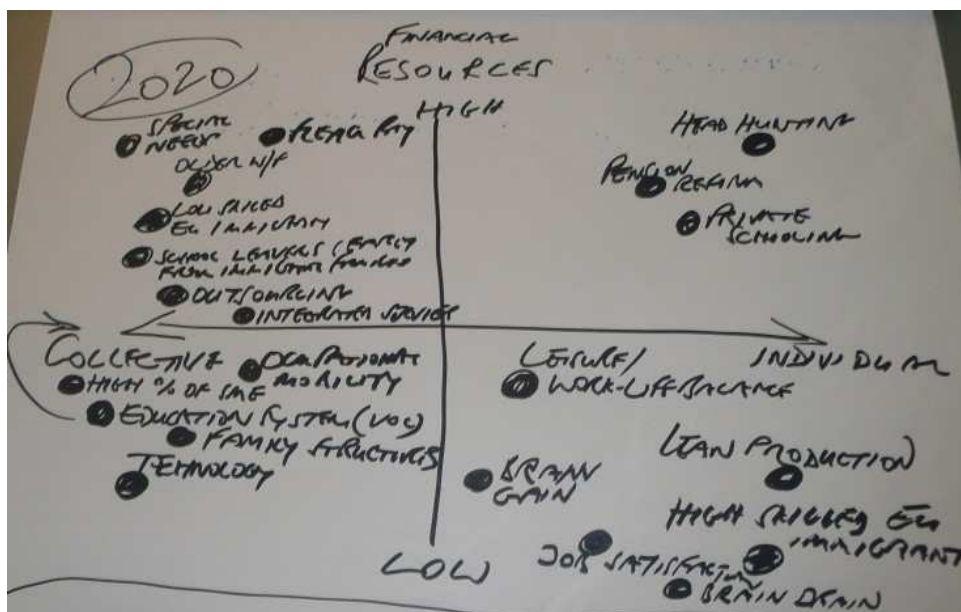 FINANCIAL
RESOURCES
2020
HIGH
SPECIAL
NEEDS
OLDER W/F
LOW SKILLED
EU IMMIGRANT
SCHOOL LEAVERS (EARLY
FROM IMMIGRANT FAMILIES
OUTSOURCING
INTEGRATED SERVICES
HEAD HUNTING
PENSION REFORM
PRIVATE
SCHOOLING
COLLECTIVE
INDIVIDUAL
OCCUPATIONAL
MOBILITY
HIGH % OF SME
EDUCATION SYSTEM (VOC)
FAMILY STRUCTURES
TECHNOLOGY
LEISURE/
WORK-LIFE BALANCE
LEAN PRODUCTION
BRAIN
GAIN
HIGH SKILLED EU
IMMIGRANT
JOB SATISFACTION
BRAIN DRAIN
LOW